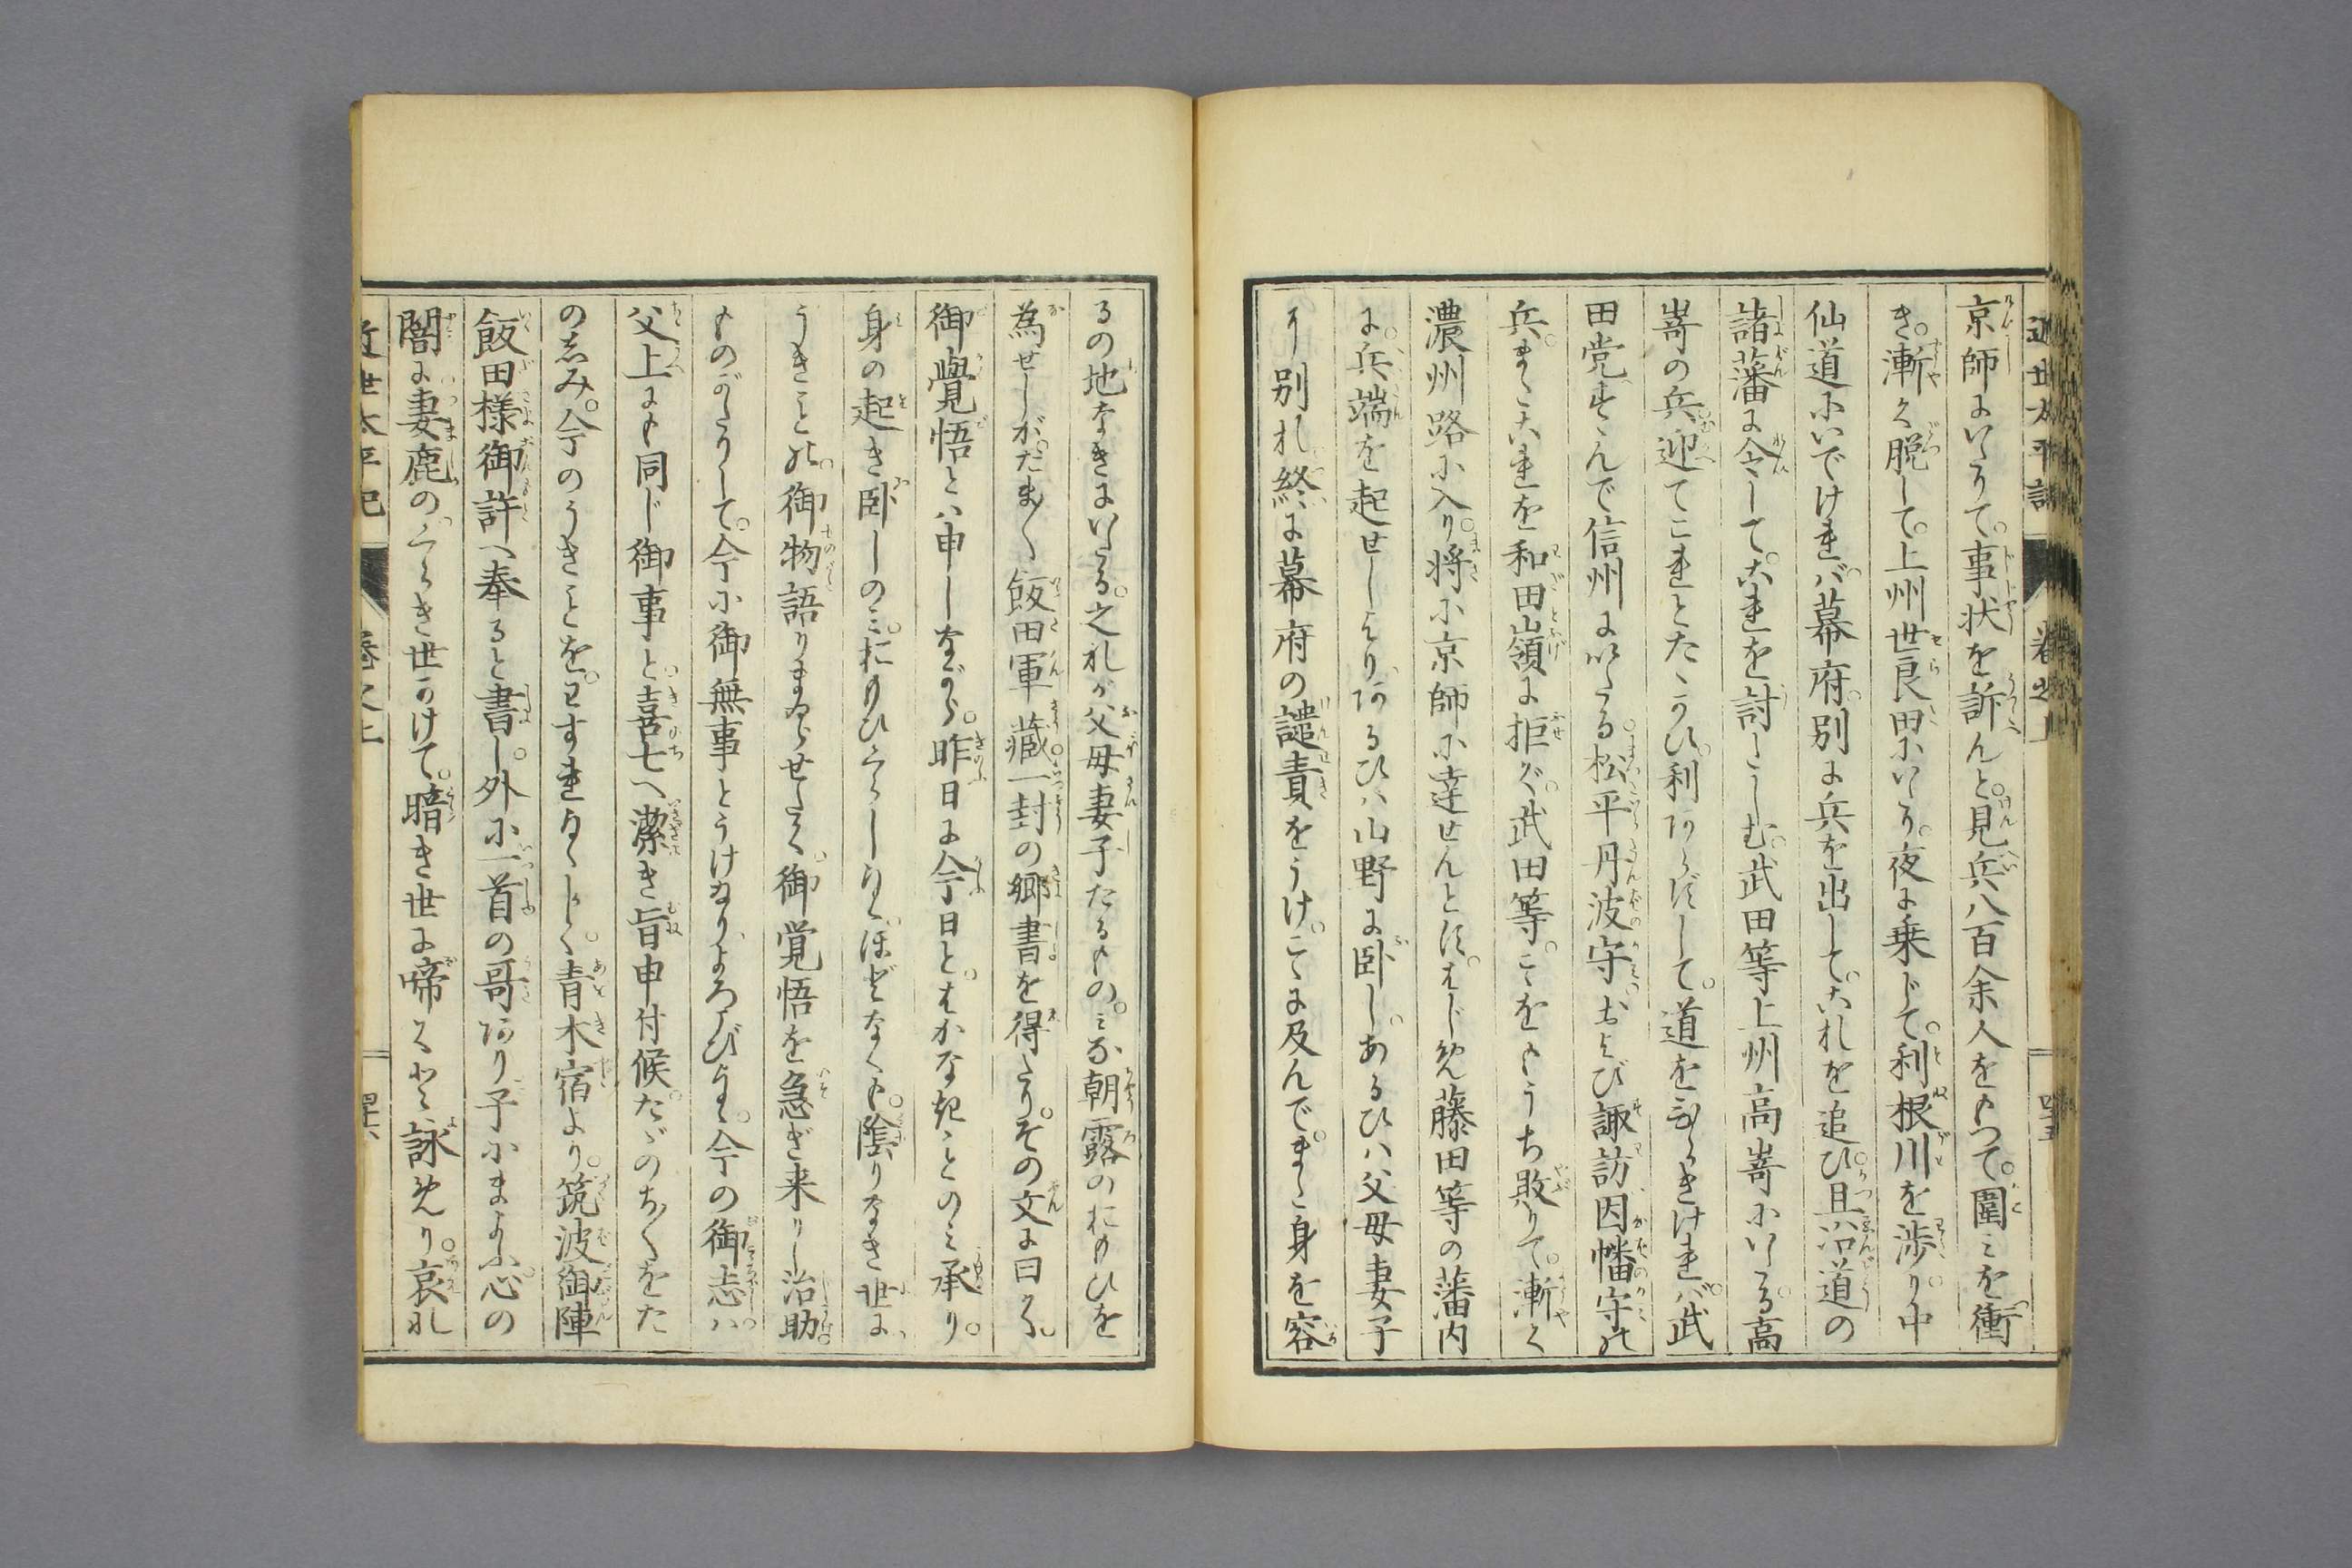 近世太平記 巻之
京師にいたりて。事状を訴んと。見兵八百余人をもつて。圍みを衝
き。漸く脱して。上州世良田にいたり。夜に乗じて。利根川を渉り。中
仙道にいでければ。幕府。別に兵を出して。これを追ひ。且沿道の
諸藩に令して。これを討たしむ。武田等上州高崎にいたる。高
崎の兵迎てこれとたゝかひ。利あらずして。道をひらきければ。武
田党すゝんで信州にいたる。松平丹波守。および諏訪因幡守の
兵。またこれを和田嶺に拒ぐ。武田等。こゝをもうち敗りて。漸く
濃州路に入り。将に京師に達せんとす。はじめ藤田等の藩内
に。兵端を起せしより。あるひハ山野に卧し。あるひハ父母妻子
に別れ。終に幕府の譴責をうけ。こゝに及んで。また身を容
るの地なきにいたる。之れが父母妻子たるもの。みな朝露のおもひを
為せしが。たま〱飯田軍藏。一封の郷書を得たり。その文に曰く。
御覺悟とハ申しながら。昨日に今日と。はかなきことのみ承り。
身の起き卧しのミ。おもひくらしまゐ。ほどなくも。陰りなき世に
うきことの。御物語りまゐらせたく。御覚悟を急ぎ来りし治助
ものがたりして。今に御無事とうけ給りよろこび。今の御志ハ
父上にも同じ御事と。喜七へ潔き旨申付候。たゞのちゝをた
のしみ。今のうきことを。わすれ。青木宿より。筑波御陣
飯田様御許へ奉ると書し。外に一首の哥あり子にまよふ心の
闇に妻鹿のくらき世かけて。暗き世に啼くと詠めり。哀れ
近世太平記 巻之上